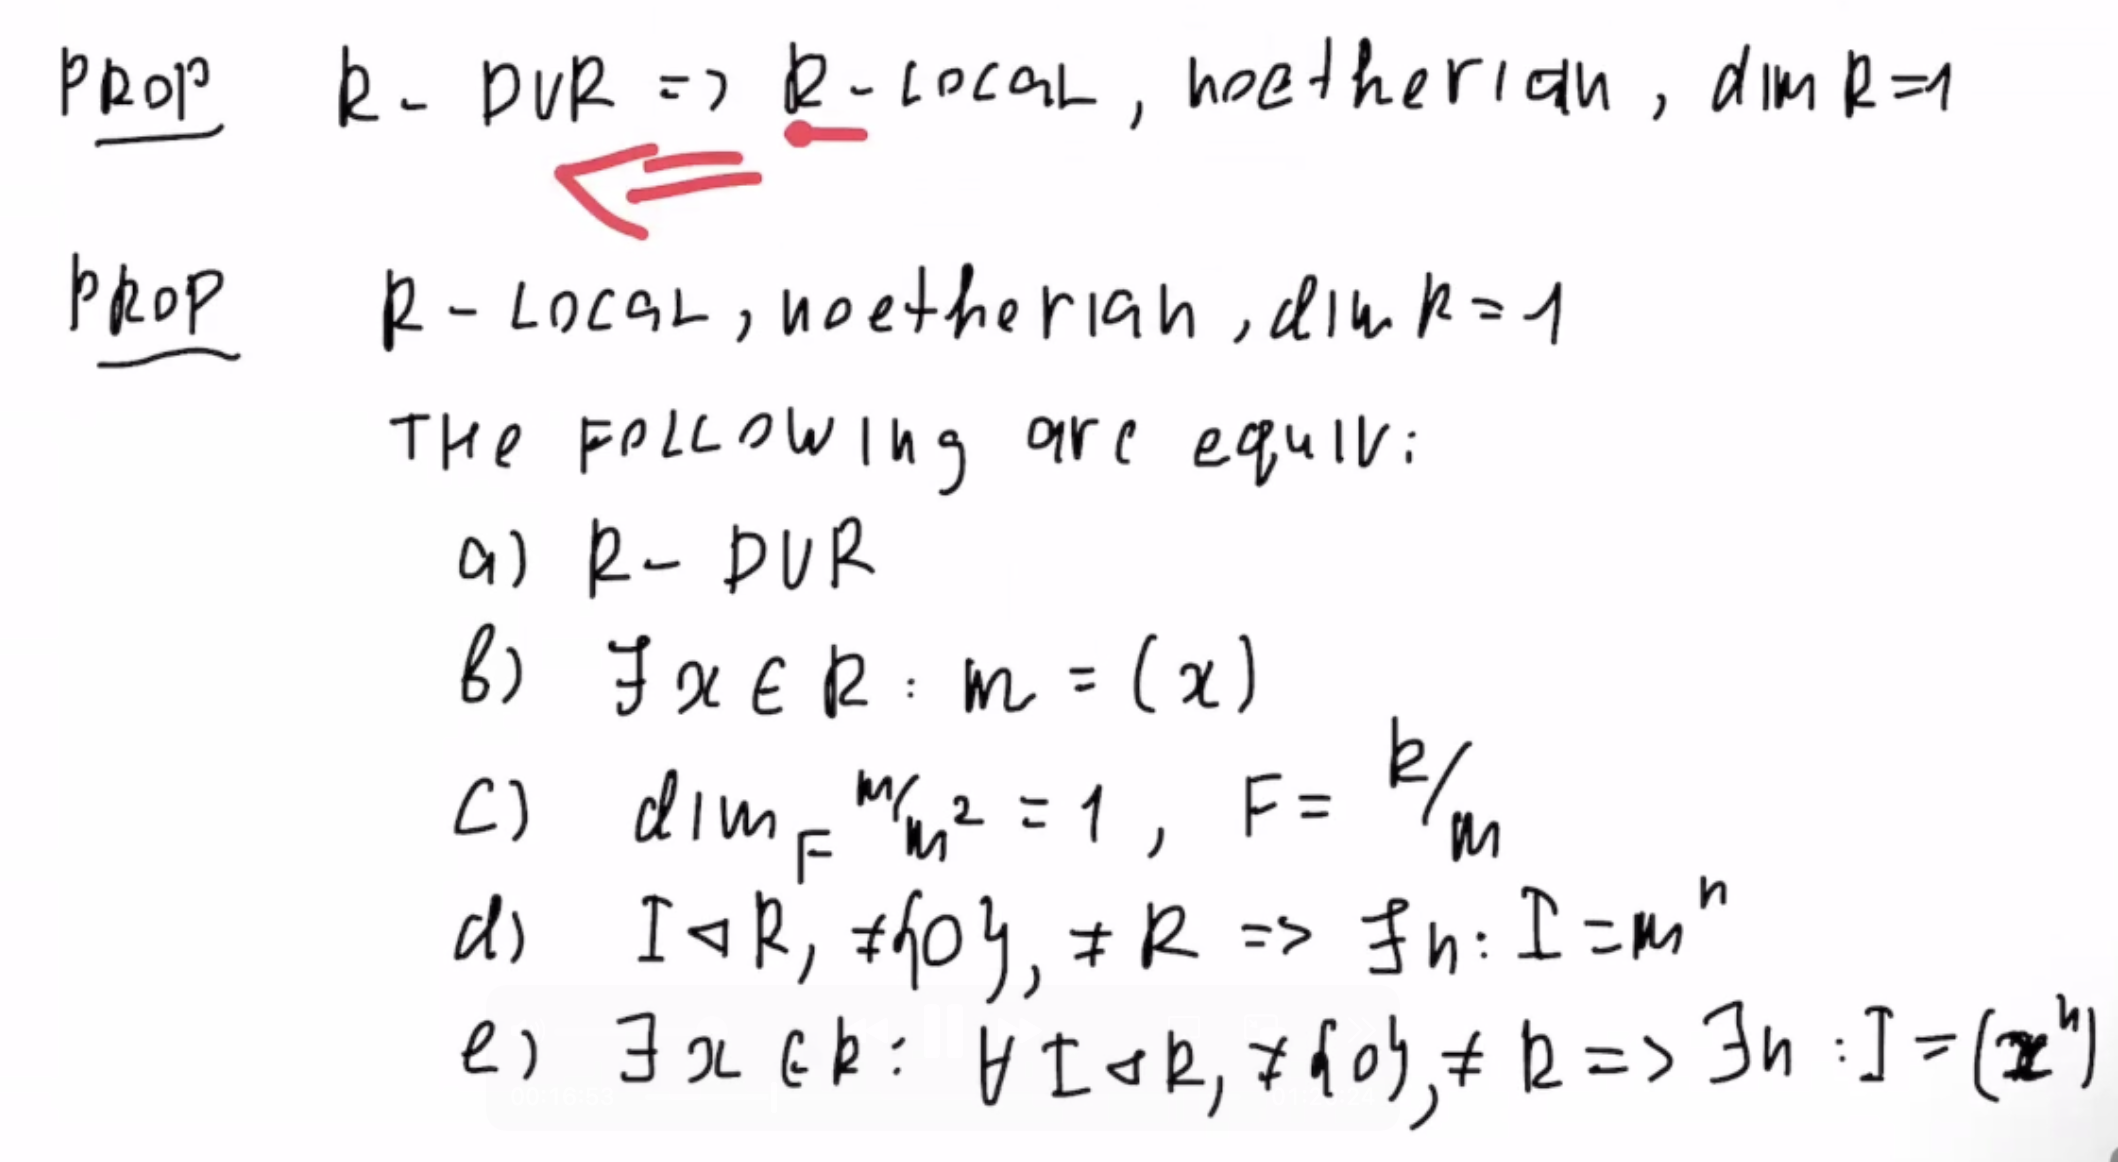 PROP R - DVR => R - LOCAL, noetherian, dim R=1
<=
PROP R - LOCAL, noetherian, dim R=1
THE FOLLOWING are equiv:
a) R - DVR
b) ∃ x ∈ R : m = (x)
c) dim_F m/m² = 1, F = R/m
d) I ⊲ R, ≠{0}, ≠ R => ∃ n : I = mⁿ
e) ∃ x ∈ R : ∀ I ⊲ R, ≠{0}, ≠ R => ∃ n : I = (xⁿ)